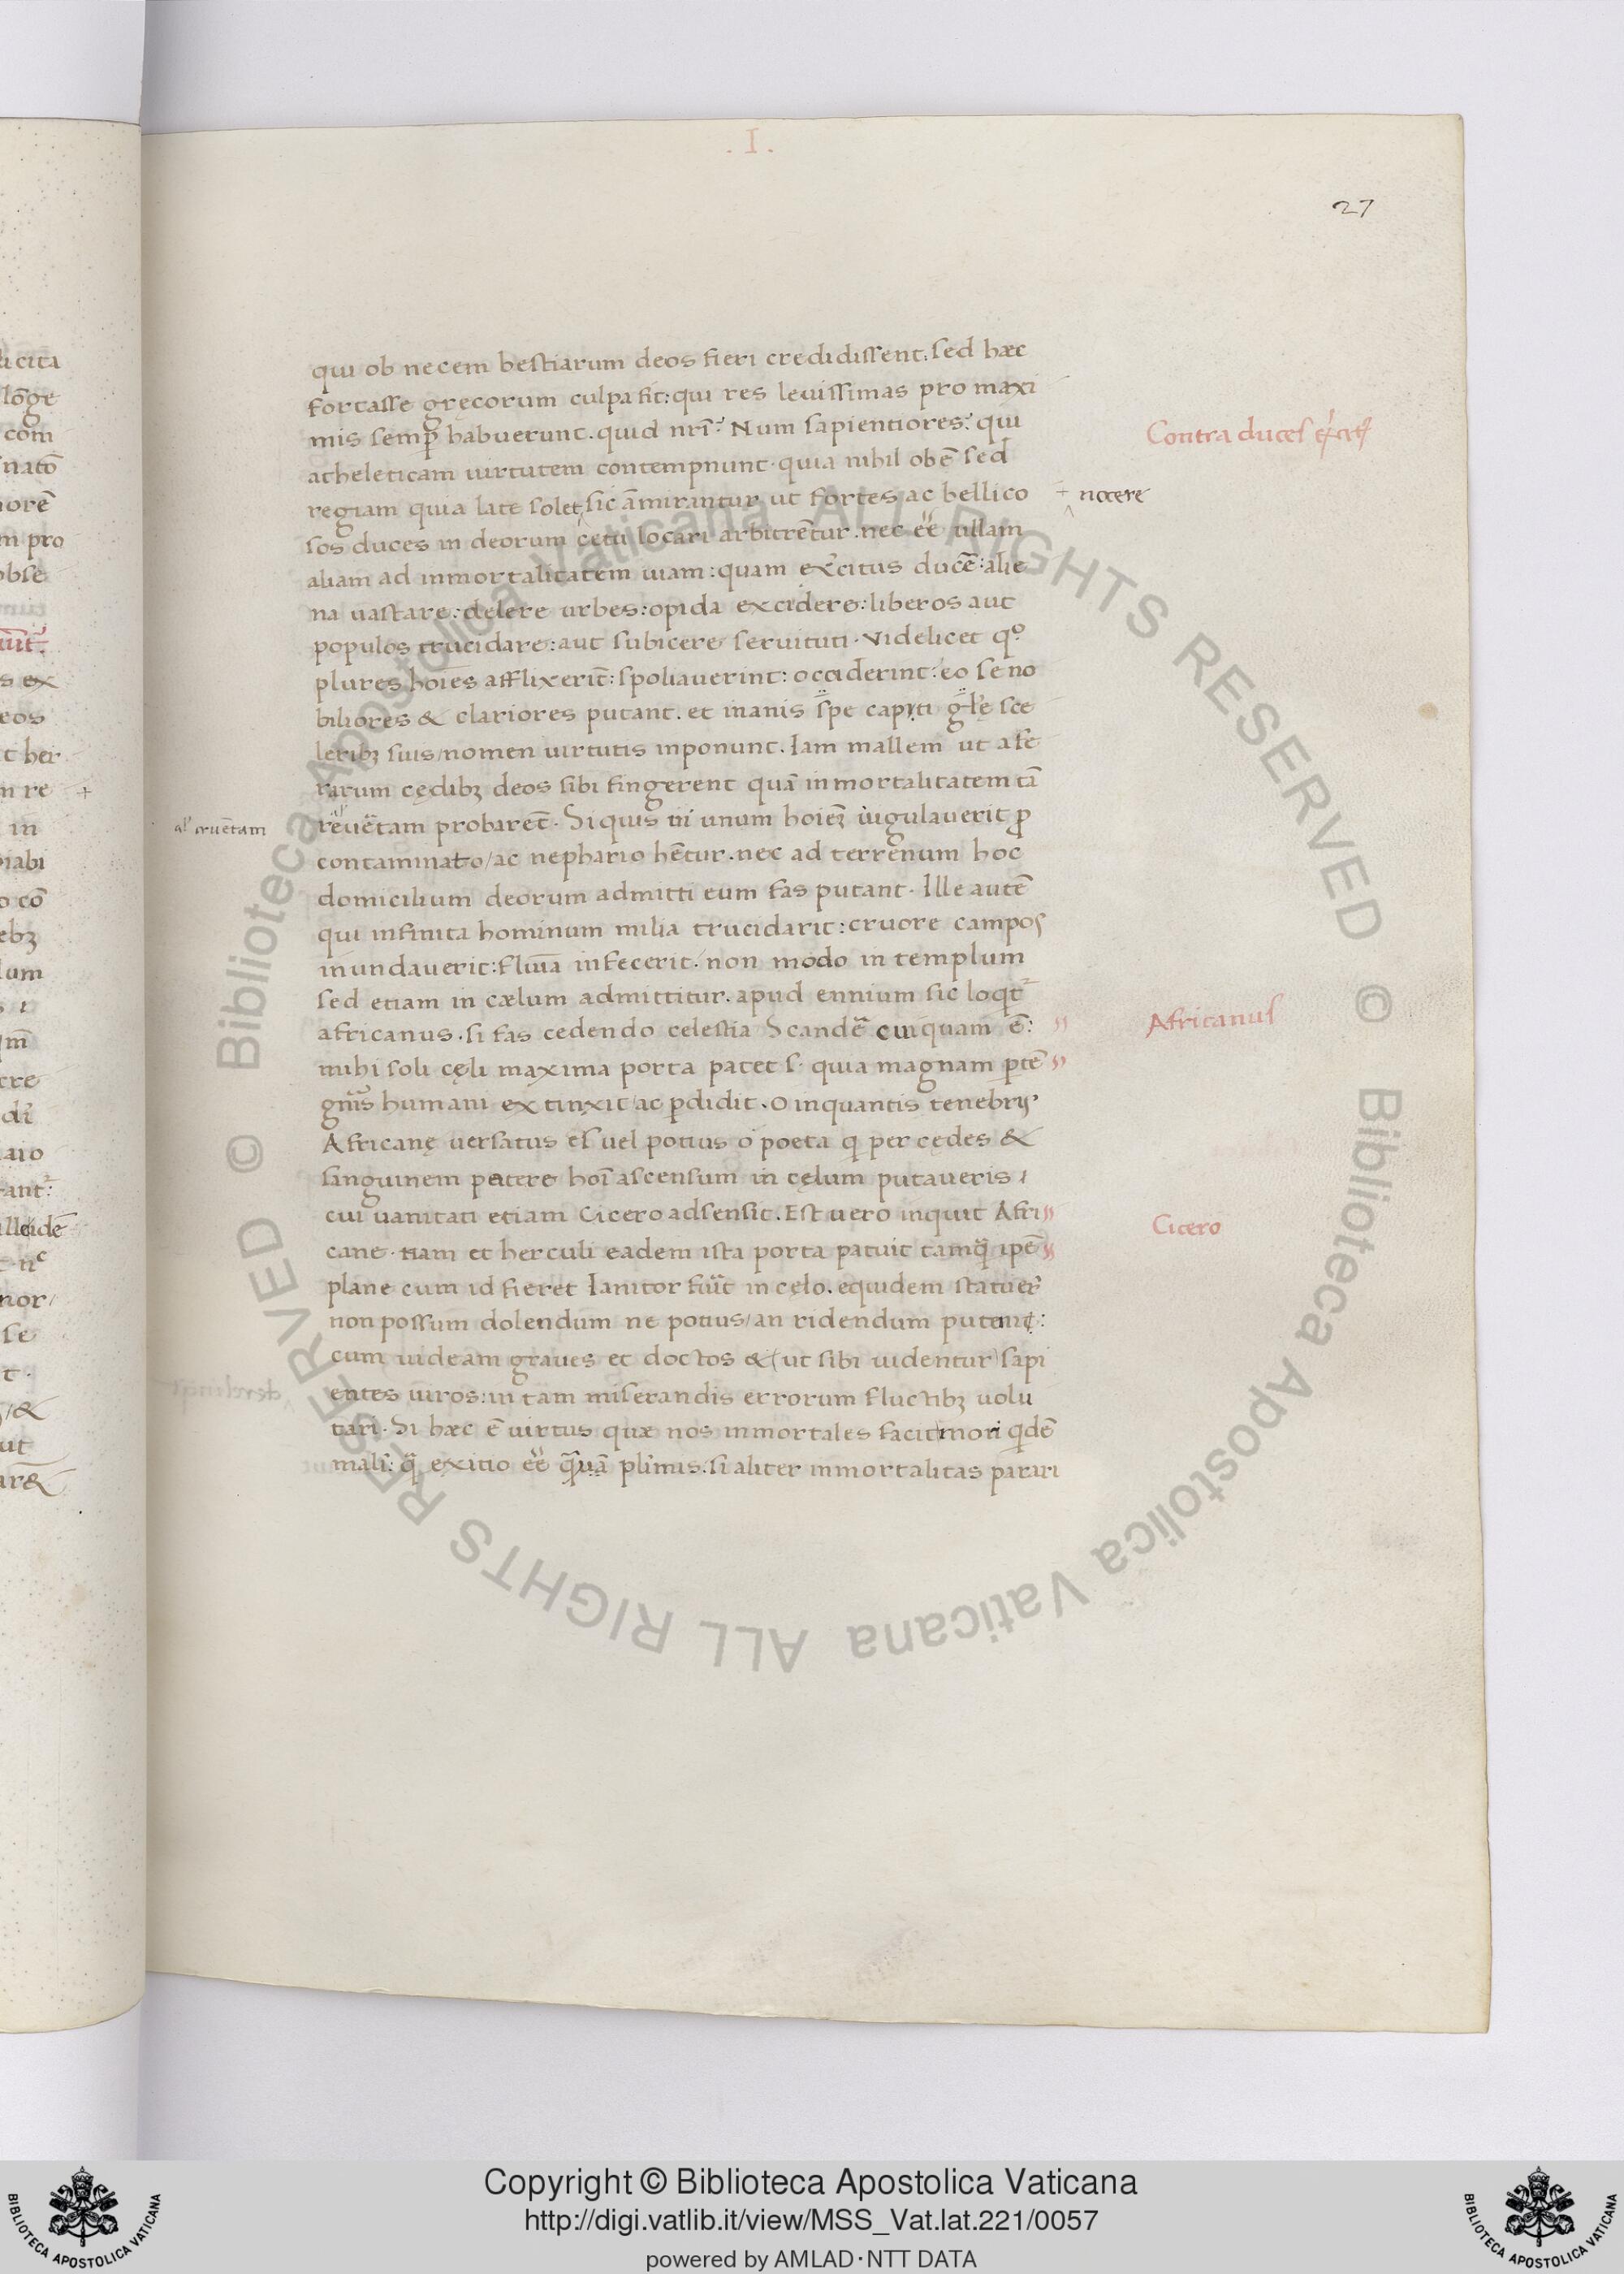 .I.
27
qui ob necem bestiarum deos fieri credidissent. sed hæc
fortasse gręcorum culpa fit: qui res leuissimas pro maxi
mis semꝑ habuerunt. quid nr̄i? Num sapientiores? qui
atheleticam uirtutem contempnunt. quia nihil obē sed
regiam quia late solet sic āmirantur ut fortes ac bellico
sos duces in deorum cętu locari arbitrēntur. nec eē ullam
aliam ad inmortalitatem uiam: quam exercitus ducē: alie
na uastare: delere urbes: opida excidere: liberos aut
populos trucidare: aut subicere seruituti. Videlicet qͦ
plures hoīes afflixerīt: spoliauerint: occiderint: eo se no
biliores & clariores putant. et inanis spe capti gl̄e sce
leribꝫ suis/nomen uirtutis inponunt. Iam mallem ut a fe
rarum cędibꝫ deos sibi fingerent quā inmortalitatem tā
reuētam probarēt. Siquis ūl unum hoiēꝫ iugulauerit ꝓ
contaminato/ac nephario hētur. nec ad terrenum hoc
domicilium deorum admitti eum fas putant. Ille autē
qui infinita hominum milia trucidarit: cruore campos
inundauerit: flumīa infecerit/non modo in templum
sed etiam in cælum admittitur. apud ennium sic loqt᷑
africanus. si fas cedendo celestia Scandē cuiquam ē:
mihi soli cęli maxima porta patet s. quia magnam ꝑtē
gn̄is humani extinxit/ac ꝑdidit. O inquantis tenebris
Africanę uersatus es uel potius o poeta q per cędes &
sanguinem patere hoī ascensum in cęlum putaueris
cui uanitati etiam Cicero adsensit. Est uero inquit Afri
cane. nam et herculi eadem ista porta patuit tamq̄ ipē
plane cum id fieret Ianitor fūīt in cęlo. equidem statuer̄
non possum dolendum ne potius/an ridendum putem:
cum uideam graues et doctos &(ut sibi uidentur)sapi
entes uiros: in tam miserandis errorum fluctibꝫ uolu
tari. Si hæc ē uirtus quæ nos inmortales facit mori qdē
mali: q̄ exitio eē q̄uā plimis: si aliter inmortalitas parari
al' cruētam
Contra duces
nocere
Africanus
Cicero
Copyright © Biblioteca Apostolica Vaticana
http://digi.vatlib.it/view/MSS_Vat.lat.221/0057
powered by AMLAD·NTT DATA
© Biblioteca Apostolica Vaticana ALL RIGHTS RESERVED © Biblioteca Apostolica Vaticana ALL RIGHTS RESERVED
BIBLIOTECA APOSTOLICA VATICANA
BIBLIOTECA APOSTOLICA VATICANA